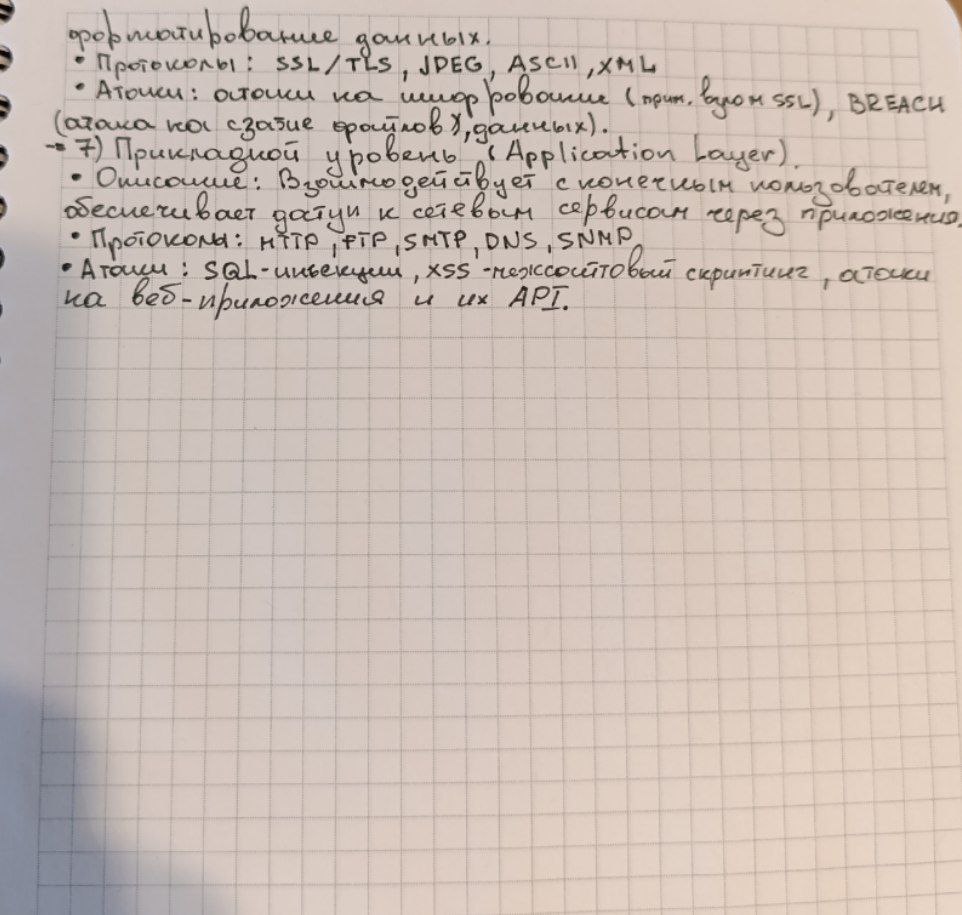 форматирование данных.
• Протоколы: SSL/TLS, JPEG, ASCII, XML
• Атаки: атаки на шифрование (прим. взлом SSL), BREACH
(атака на сзатие файлов), данных).
→ 7) Прикладной уровень (Application Layer).
• Описание: Взаимодействует с конечным пользователем,
обеспечивает доступ к сетевым сервисам через приложения.
• Протоколы: HTTP, FTP, SMTP, DNS, SNMP
• Атаки: SQL-инъекции, XSS-межсайтовый скриптинг, атаки
на веб-приложения и их API.